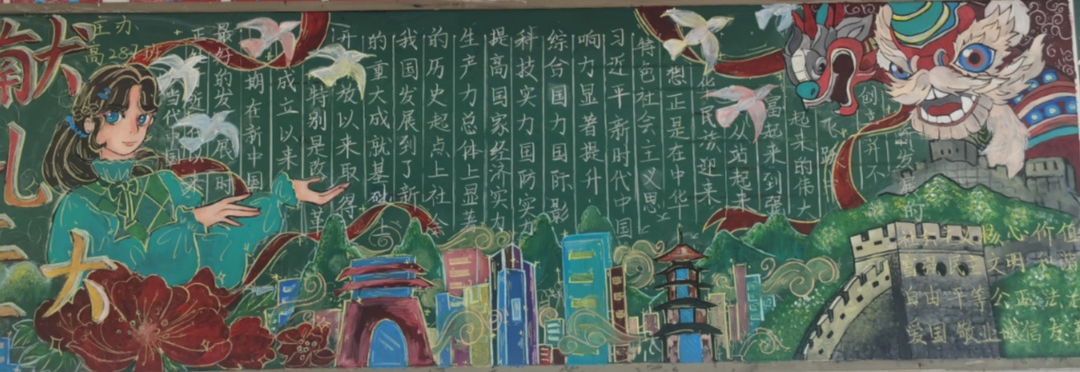 献礼二十大
庄办
高287班
当代中国
最好的发展时
期在新中国
成立以来
特别是改革
开放以来取得
的重大成就基础
我国发展到了新
的历史起点上社会
生产力总体上显著
提高国家经济实力
科技实力国防实力
综合国力国际影
响力显著提升
习近平新时代中国
特色社会主义思
想正是在中华
民族迎来
从站起来
富起来到强
起来的伟大
飞跃
核心价值
文明
自由平等公正法治
爱国敬业诚信友善